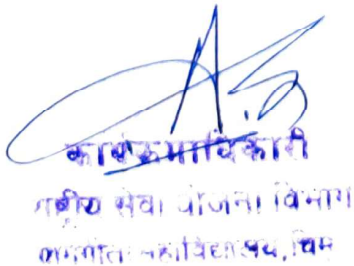 कार्यक्रमाधिकारी
राष्ट्रीय सेवा योजना विभाग
महाविद्यालय,